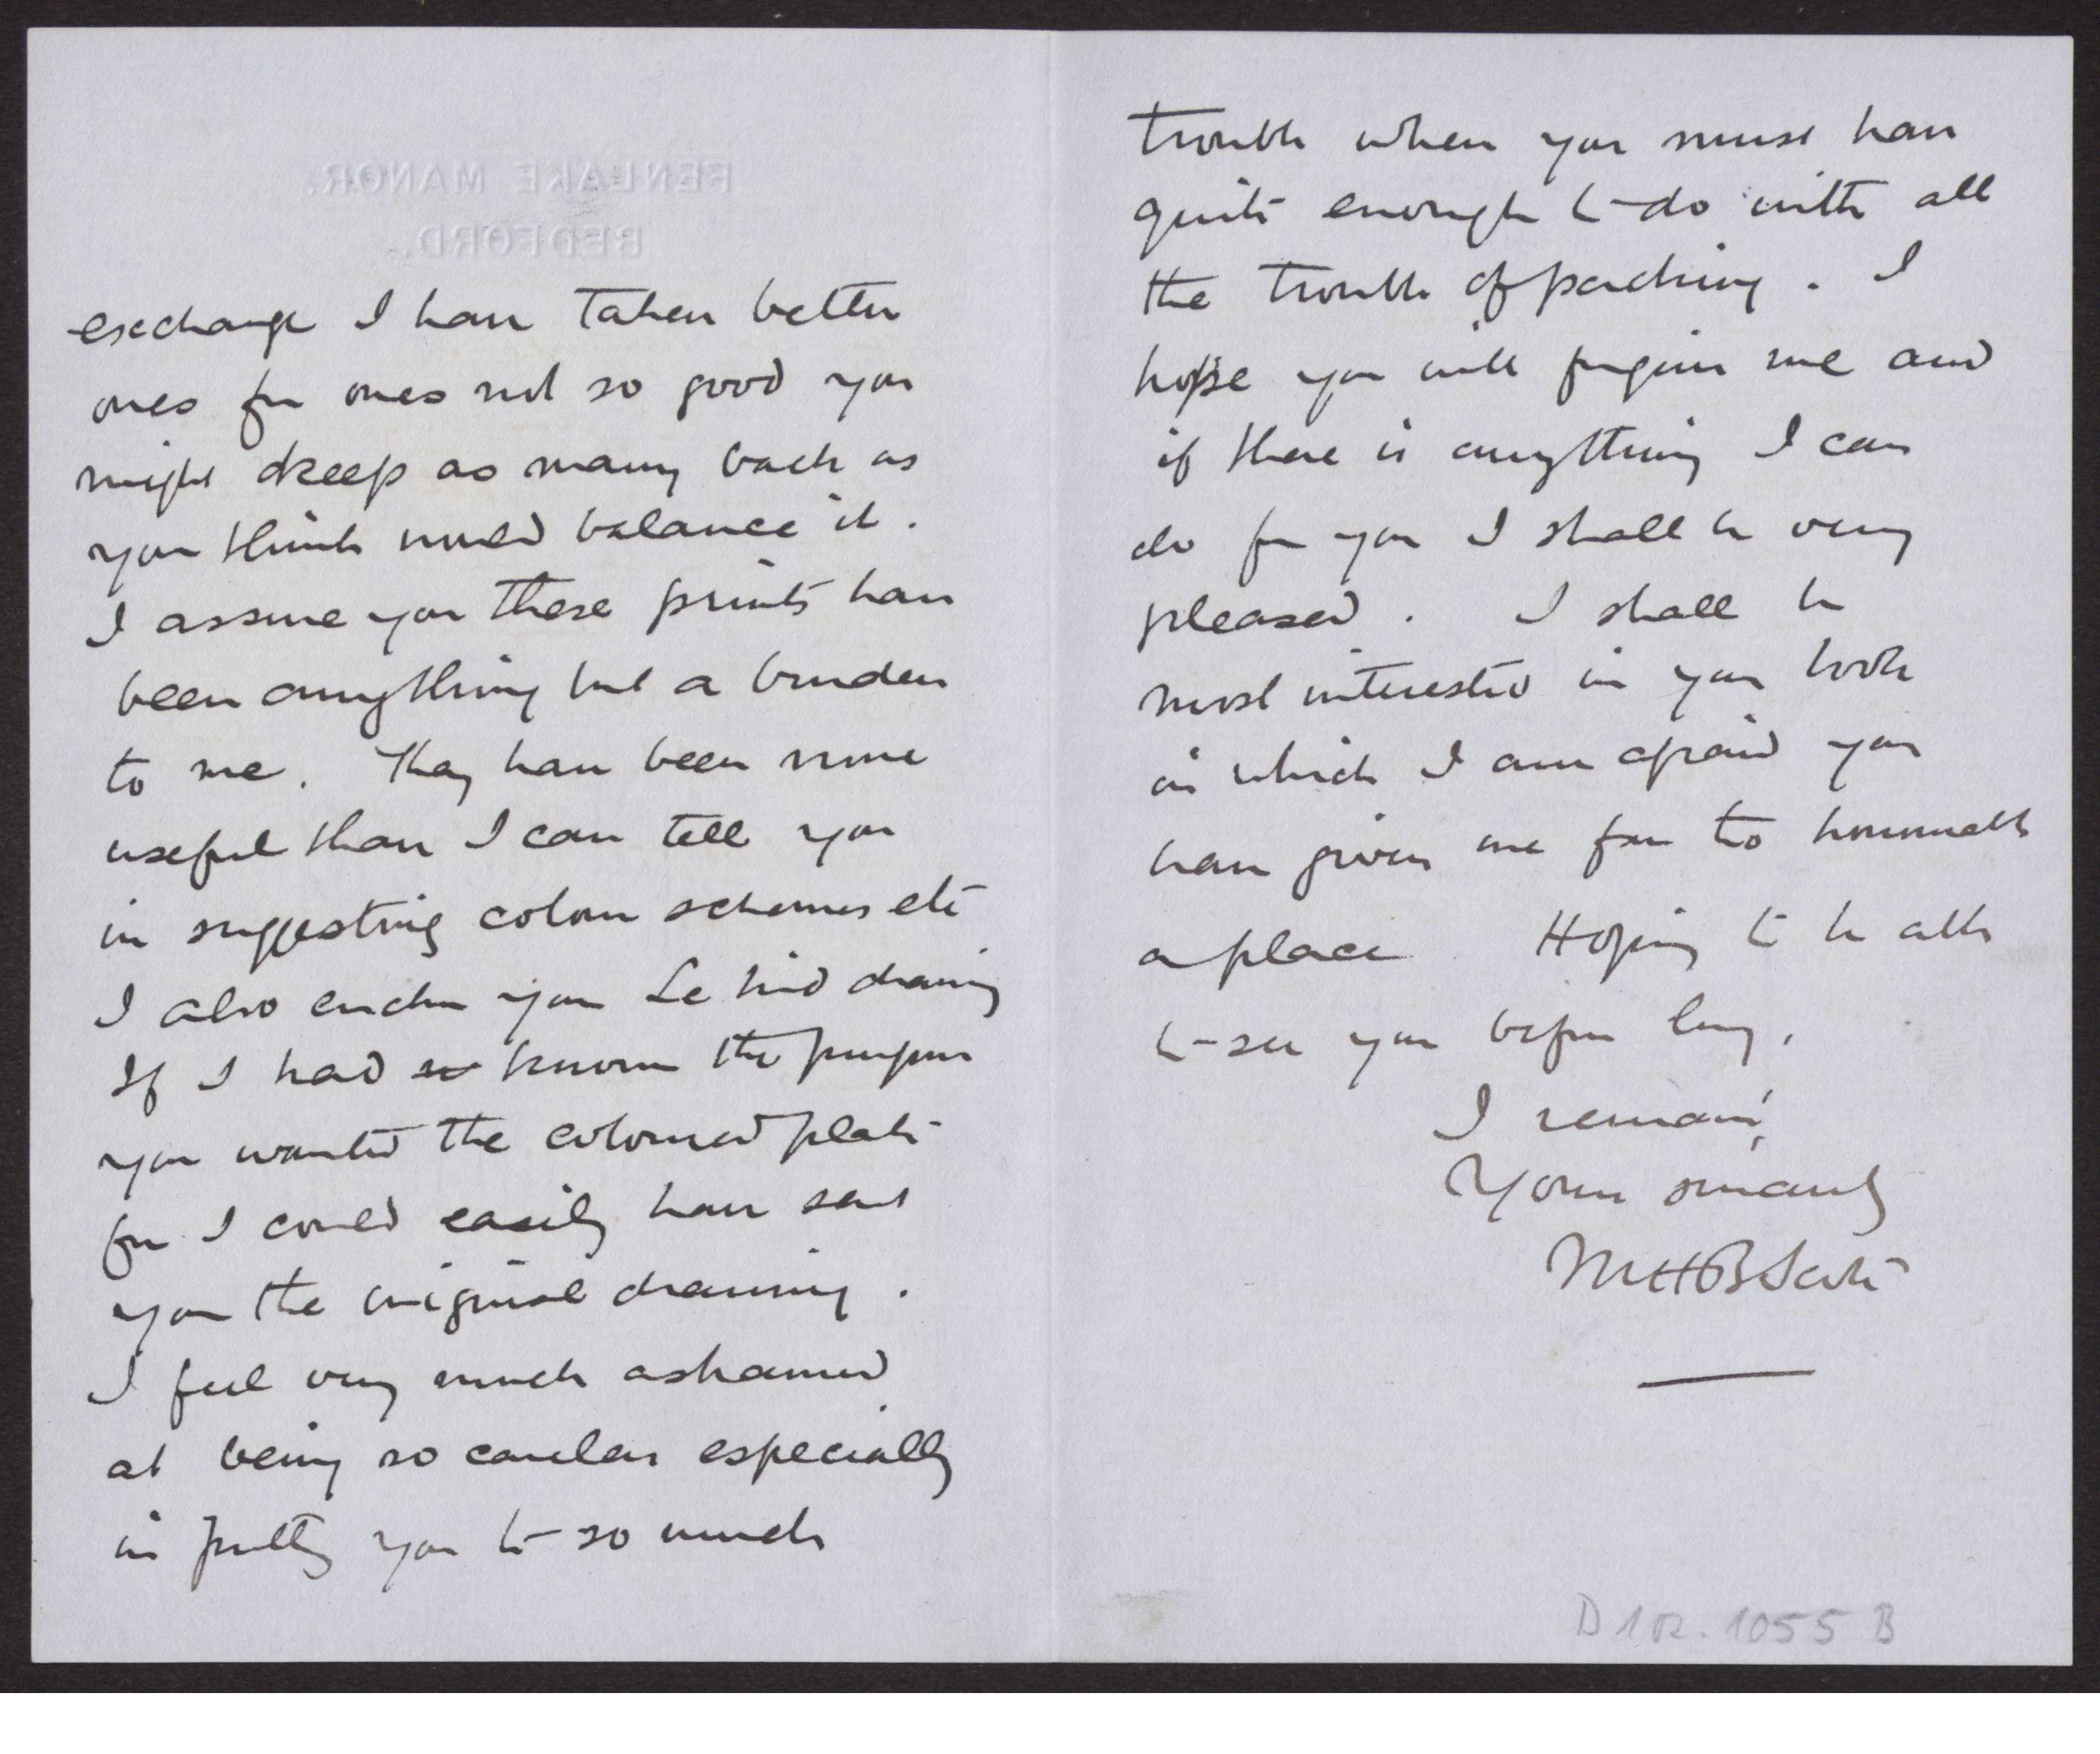 FENLAKE MANOR,
BEDFORD.
exchange I have taken better
ones for ones not so good you
might keep as many back as
you think would balance it.
I assure you these prints have
been anything but a burden
to me. They have been more
useful than I can tell you
in suggesting colour schemes etc
I also enclose you Le drawing
If I had known the purpose
you wanted the coloured plate
for I could easily have sent
you the original drawing.
I feel very much ashamed
at being so careless especially
in putting you to so much
trouble when you must have
quite enough to do with all
the trouble of packing. I
hope you will forgive me and
if there is anything I can
do for you I shall be very
pleased. I shall be
most interested in your book
in which I am afraid you
have given me far too honourable
a place Hoping to be able
to see you before long,
I remain,
Yours sincerely
MHBScott
D 102.1055 B